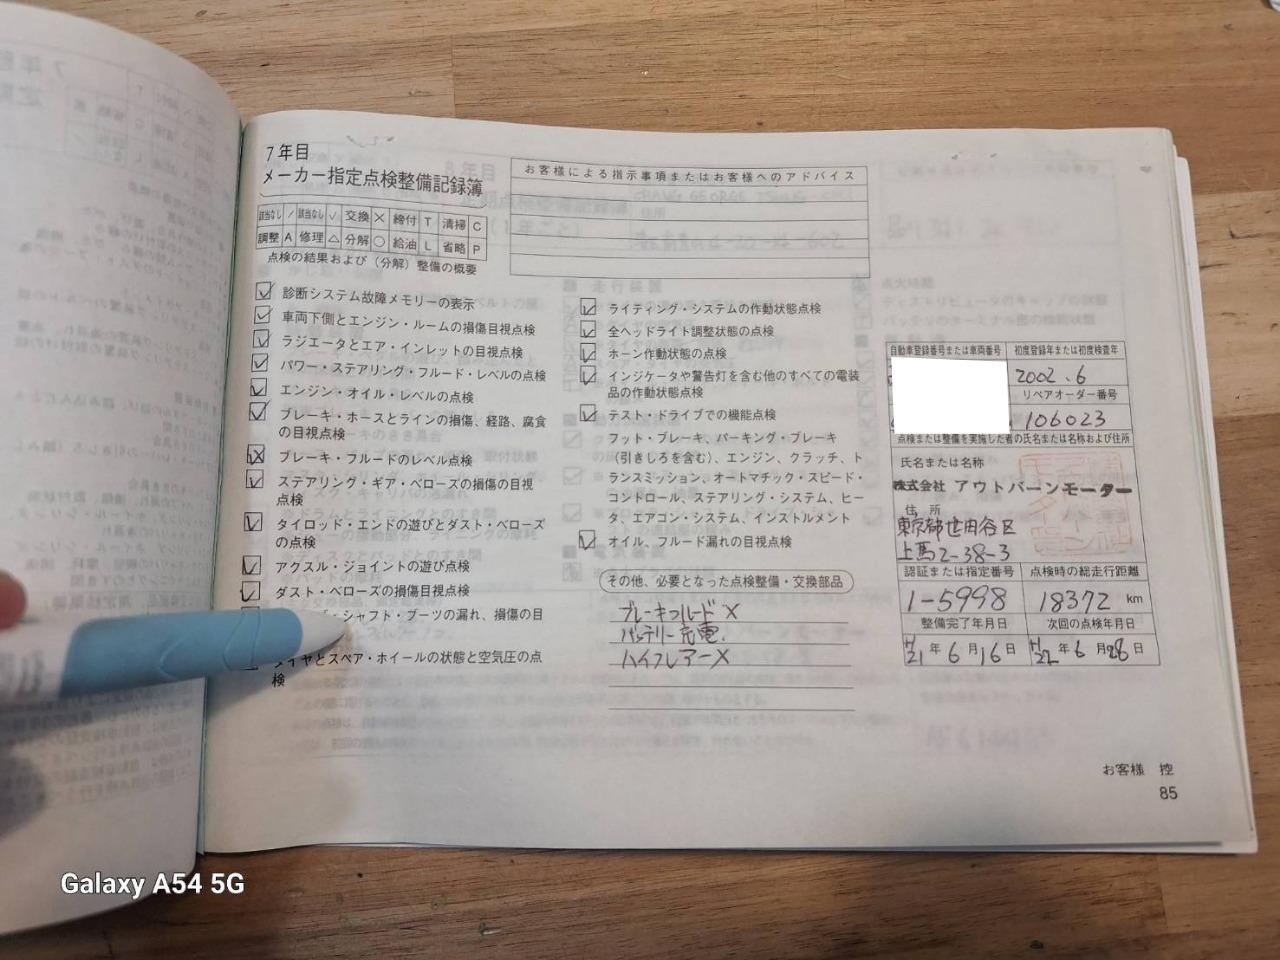 7年目
メーカー指定点検整備記録簿
お客様による指示事項またはお客様へのアドバイス
該当なし / 該当なし √ 交換 × 締付 T 清掃 C
調整 A 修理 △ 分解 ○ 給油 L 省略 P
点検の結果および(分解)整備の概要
診断システム故障メモリーの表示
車両下側とエンジン・ルームの損傷目視点検
ラジエータとエア・インレットの目視点検
パワー・ステアリング・フルード・レベルの点検
エンジン・オイル・レベルの点検
ブレーキ・ホースとラインの損傷、経路、腐食
の目視点検
ブレーキ・フルードのレベル点検
ステアリング・ギア・ベローズの損傷の目視
点検
タイロッド・エンドの遊びとダスト・ベローズ
の点検
アクスル・ジョイントの遊び点検
ダスト・ベローズの損傷目視点検
シャフト・ブーツの漏れ、損傷の目
タイヤとスペア・ホイールの状態と空気圧の点
検
ライティング・システムの作動状態点検
全ヘッドライト調整状態の点検
ホーン作動状態の点検
インジケータや警告灯を含む他のすべての電装
品の作動状態点検
テスト・ドライブでの機能点検
フット・ブレーキ、パーキング・ブレーキ
(引きしろを含む)、エンジン、クラッチ、ト
ランスミッション、オートマチック・スピード・
コントロール、ステアリング・システム、ヒー
タ、エアコン・システム、インストルメント
オイル、フルード漏れの目視点検
その他、必要となった点検整備・交換部品
ブレーキフルード ×
バッテリー充電.
ハイフレアー×
自動車登録番号または車両番号 初度登録年または初度検査年
2002.6
リペアオーダー番号
106023
点検または整備を実施した者の氏名または名称および住所
氏名または名称
株式会社 アウトバーンモーター
住所
東京都世田谷区
上馬2-38-3
認証または指定番号 点検時の総走行距離
1-5998 18372 km
整備完了年月日 次回の点検年月日
H21年6月16日 H22年6月28日
お客様 控
85
Galaxy A54 5G